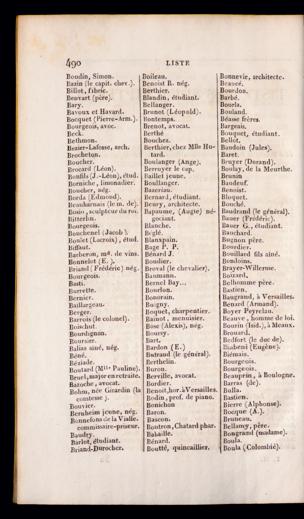 490
LISTE
Boudin, Simon.
Bazin (le capit. chev.).
Billot, fabric.
Beuvart (père).
Bary.
Bavoux et Havard.
Bocquet (Pierre-Arm.).
Bourgeois, avoc.
Beck.
Bethmon.
Bezier-Lafosse, arch.
Brocheton.
Boucher.
Brocard (Léon).
Bonfils (J.-Léon), étud.
Borniche, limonadier.
Boucher, nég.
Borda (Edmond).
Beauharnais (le m. de).
Bosio, sculpteur du roi.
Bitterlin.
Bourgeois.
Bouchenel (Jacob).
Boulet (Lacroix), étud.
Biffaut.
Barberon, md. de vins.
Bonnelot (E.).
Briand (Frédéric) nég.
Bourgeois.
Basti.
Burrette.
Bernier.
Baillargeau.
Berger.
Barrois (le colonel).
Boischut.
Bourdignon.
Boursier.
Balias aîné, nég.
Béné.
Béziade.
Boutard (Mlle Pauline).
Bruel, major en retraite.
Bazoche, avocat.
Bohm, née Girardin (la
comtesse).
Bouvier.
Bernheim jeune, nég.
Bonnefons de la Vialle.
commissaire-priseur.
Baudry.
Barlot, étudiant.
Briand-Durocher.
Boileau.
Benoist B. nég.
Berthier.
Blandin, étudiant.
Bellanger.
Brunet (Léopold).
Bontemps.
Benoit, avocat.
Berthé
Bouchez.
Berthier, chez Mlle Hu-
tard.
Boulanger (Ange).
Berruyer le cap.
Baillet jeune.
Boullanger.
Bazerian.
Bernard, étudiant.
Beury, architecte.
Bapaume, (Augte) né-
gociant.
Blanche.
Béglé.
Blanxpain.
Bage P. P.
Bénard J.
Boudier.
Breval (le chevalier).
Baumann.
Bernel Bay...
Bourlon.
Bonorain.
Buigny.
Boquet, charpentier.
Bainot, menuisier.
Bose (Alexis), nég.
Boursy.
Bart.
Bardon (E.)
Berthelin.
Buron.
Berville, avocat.
Bordier.
Benoit, hor. à Versailles.
Bodin, prof. de piano.
Bonichon
Baron.
Bascou.
Bontron, Chatard phar.
Babaille.
Bénard.
Boutté, quincaillier.
Bonnevie, architecte.
Beaucé.
Bourdon.
Barbé.
Bourla.
Bouland.
Béasse frères.
Bargeais.
Bouquet, étudiant.
Bellot.
Baudoin (Jules).
Baret.
Bruyer (Durand).
Boulay, de la Meurthe.
Brunin
Baudeuf.
Benoist.
Bloquet.
Bouché.
Baudrand (le général).
Bauer (Frédéric).
Bauer G., étudiant.
Bauchard.
Bugnon père.
Bourdier.
Bouillard fils aîné.
Boudoins.
Brayer-Willerme.
Boizard.
Belhomme père.
Bastien.
Baugrand, à Versailles.
Benard (Armand).
Boyer Peyrelau.
Beauve, homme de loi.
Bourin (Isid.), à Meaux.
Brouard.
Biémais.
Bourgeois.
Bourgeois.
Bauprein, à Boulogne.
Barras (de).
Bulla.
Bastien.
Bierre (Alphonse).
Bocque (A.)
Bruneau.
Bellamy, père.
Bongrand (madame).
Boula.
Boula (Colombié).